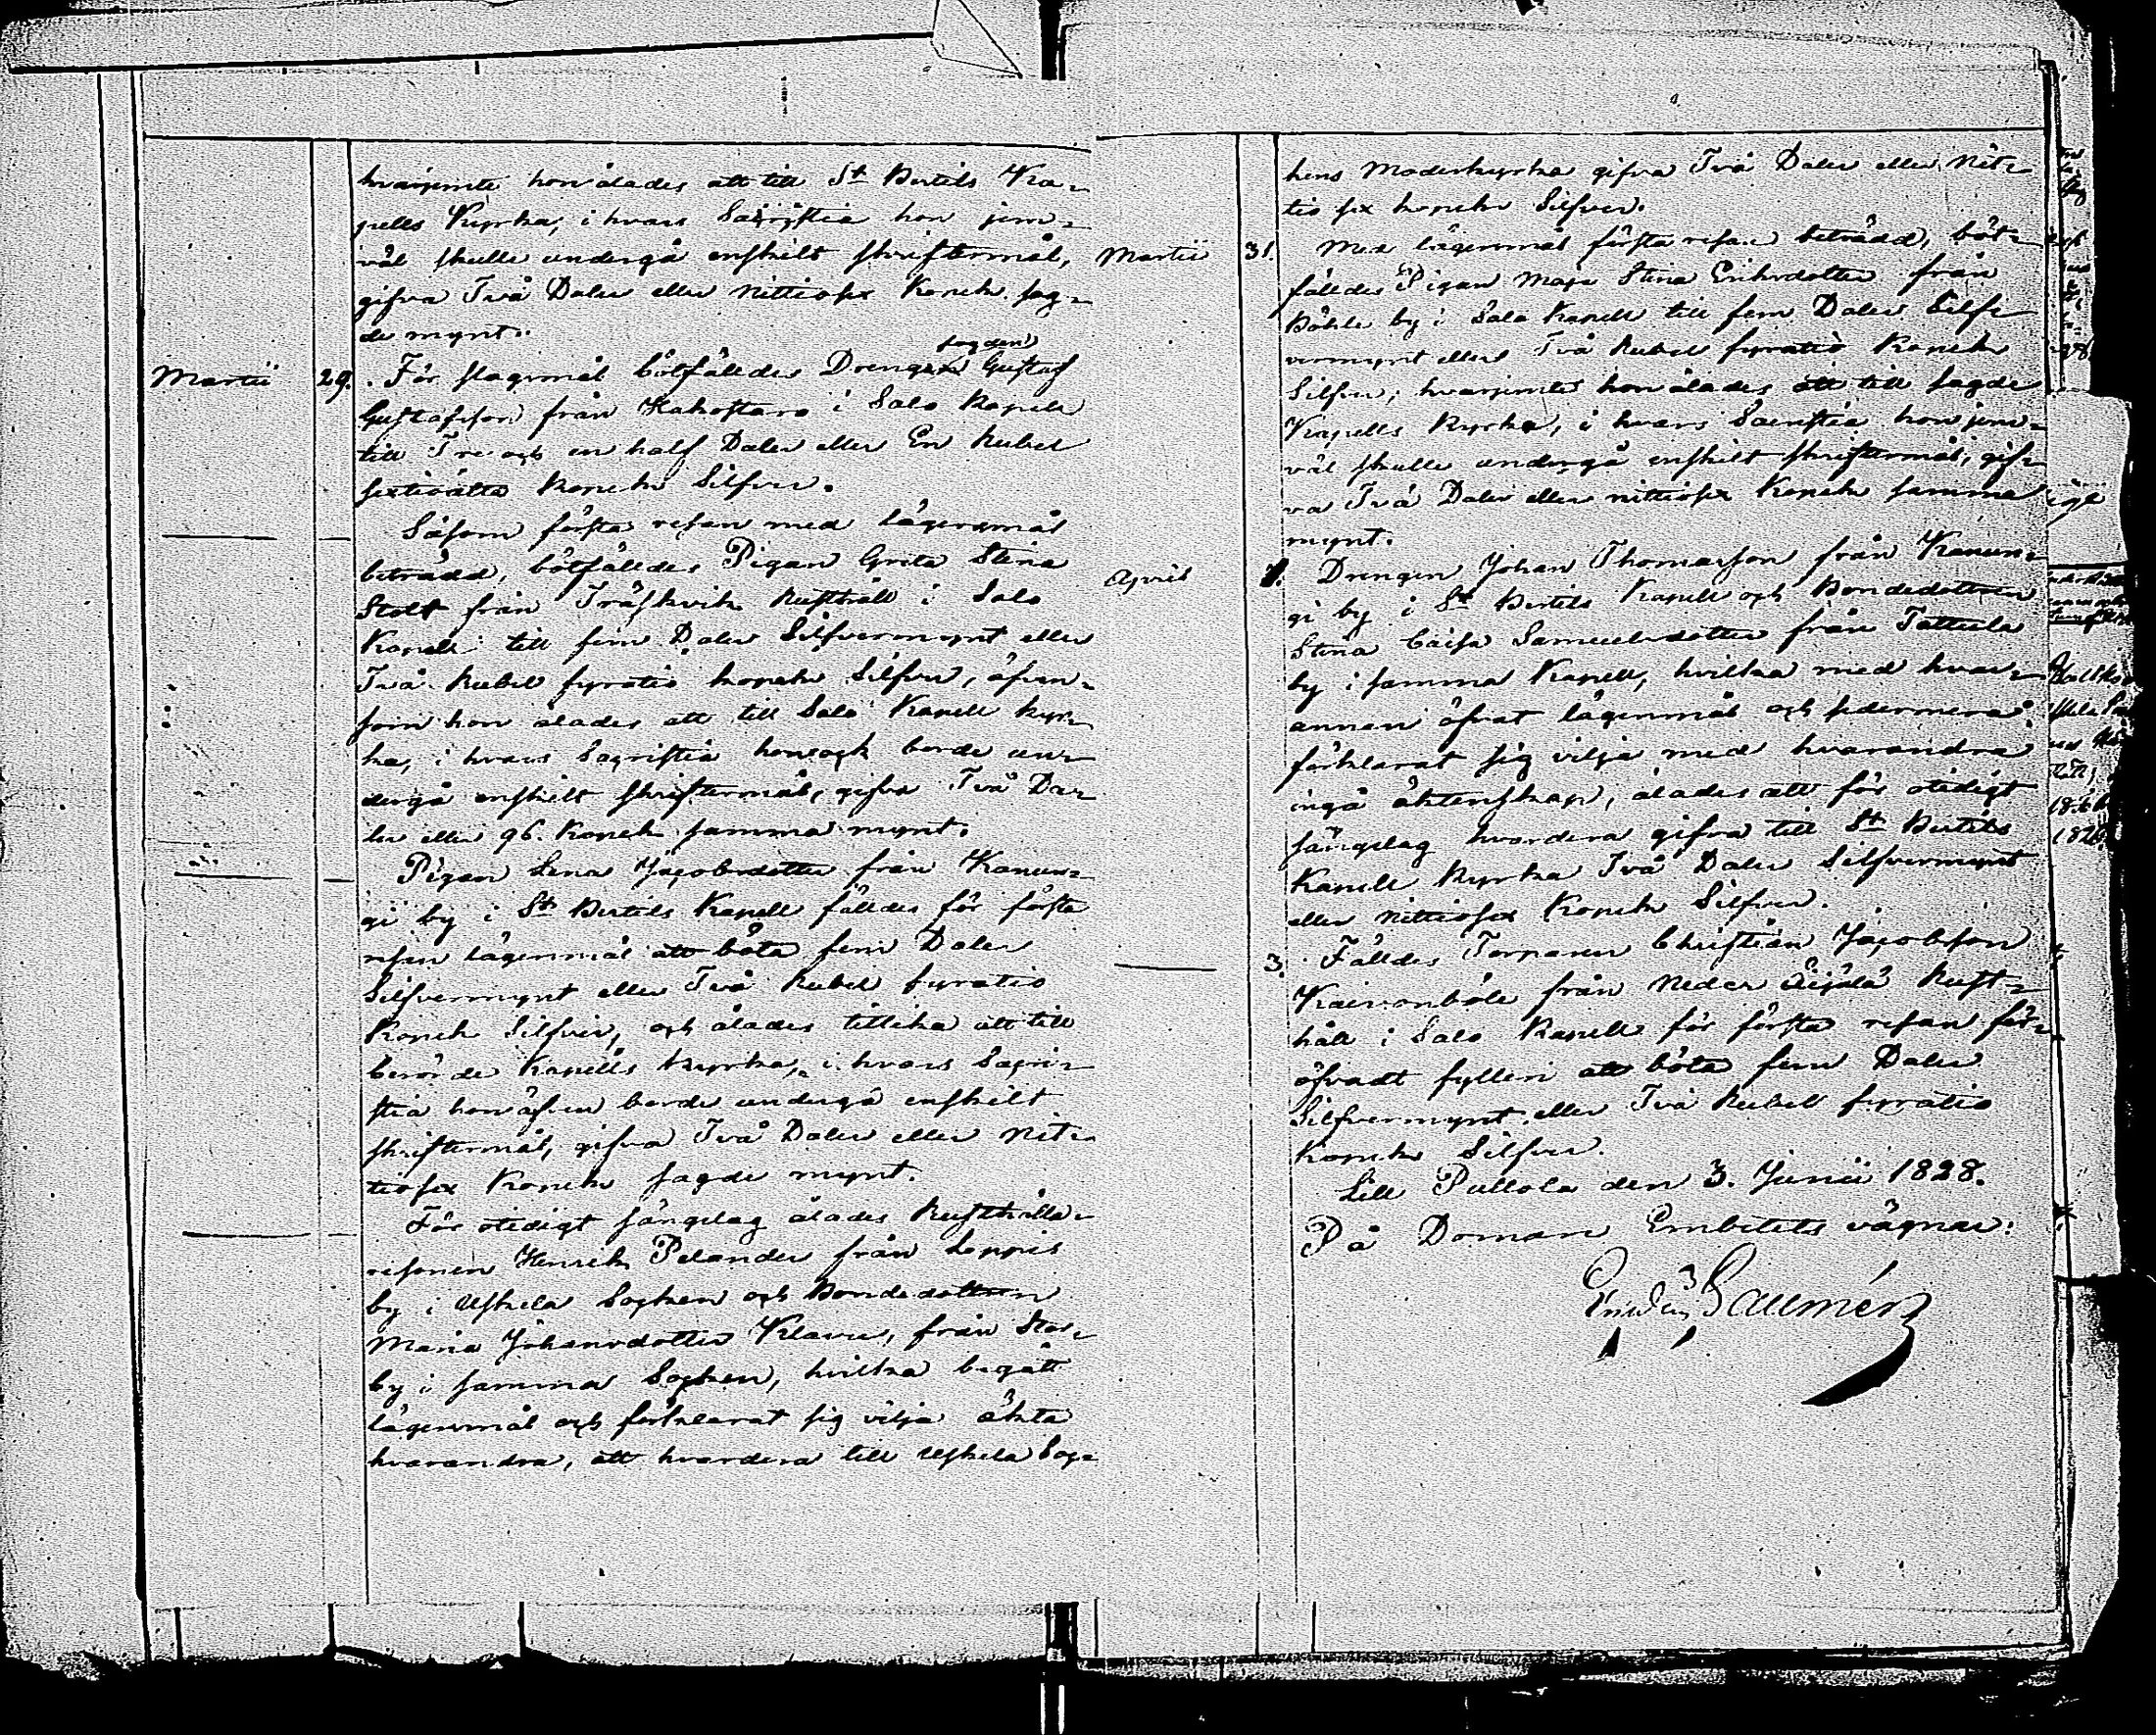 hvarjemte hon ålades att till St Bertils Ka-
pells Kyrka, i hvars Sacristia hon jem-
väl skulle undergå enskilt skriftermål,
gifva Två Daler eller Nittiosex Kopek sag-
de mynt.
Martii 29. För slagsmål bötfälldes Drengen sagden Gustaf
Gustafsson från Kakostaro i Salo Kapell
till Tre och en half Daler eller En Rubel
sextioåtta Kopek Silfver.
Såsom första resan med lägersmål
beträdd, bötfälldes Pigan Greta Stina
Stolt från Träskvik Rusthåll i Salo
Kapell till fem Daler Silfvermynt eller
Två Rubel fyratio kopek Silfver, äfven-
som hon ålades att till Salo Kapell kyr-
ka, i hvars Sacristia hon och borde un-
dergå enskilt skriftermål, gifva Två Da-
ler eller 96. Kopek samma mynt.
Pigan Lena Jacobsdotter från Kanun-
gi by i St Bertils Kapell fälldes för första
resan lägersmål att böta fem Daler
Silfvermynt eller Två Rubel fyratio
Kopek Silfver, och ålades tillika att till
berörde Kapells Kyrka, i hvars Sacri-
stia hon äfven borde undergå enskilt
skriftermål, gifva Två Daler eller Nit-
tiosex Kopek sagde mynt.
För otidigt sängelag ålades Rusthålla-
resonen Henrik Pelander från Leppis
by i Uskela Socken och Bondedottren
Maria Johansdotter Klavu, från Stor-
by i samma Socken, hvilka begått
lägersmål och förklarat sig vilja äkta
hvarandra, att hvardera till Uskela Soc-
kens Moderkyrka gifva Två Daler eller Nit-
tio sex kopek Silfver.
Martii 31. Med lägersmål första resan beträdd, böt-
fälldes Pigan Maja Stina Eriksdotter från
Båhle by i Salo Kapell till fem Daler Silf-
vermynt eller Två Rubel fyratio Kopek
Silfver, hvarjemte hon ålades att till sagde
Kapells Kyrka, i hvars Sacristia hon jem-
väl skulle undergå enskilt skriftermål, gif-
va Två Daler eller nittiosex Kopek samma
mynt.
April 1. Drengen Johan Thomasson från Kanun-
gi by i St Bertils Kapell och Bondedottren
Stina Caisa Samuelsdotter från Tattula
by i samma Kapell, hvilka med hvar-
annan öfvat lägersmål och sedermera
förklarat sig vilja med hvarandra
ingå äktenskap, ålades att för otidigt
sängelag hvardera gifva till St Bertils
Kapell kyrka Två Daler Silfvermynt
eller Nittiosex Kopek Silfver.
3. Fälldes Torparen Christian Jacobsson
Kaivonböle från Neder Äijälä Rust-
håll i Salo Kapell för första resan för-
öfvadt fylleri att böta fem Daler
Silfvermynt eller Två Rubel fyratio
Kopek Silfver.
Lill Pullola den 3. Junii 1828.
På Domare Embetets vägnar: